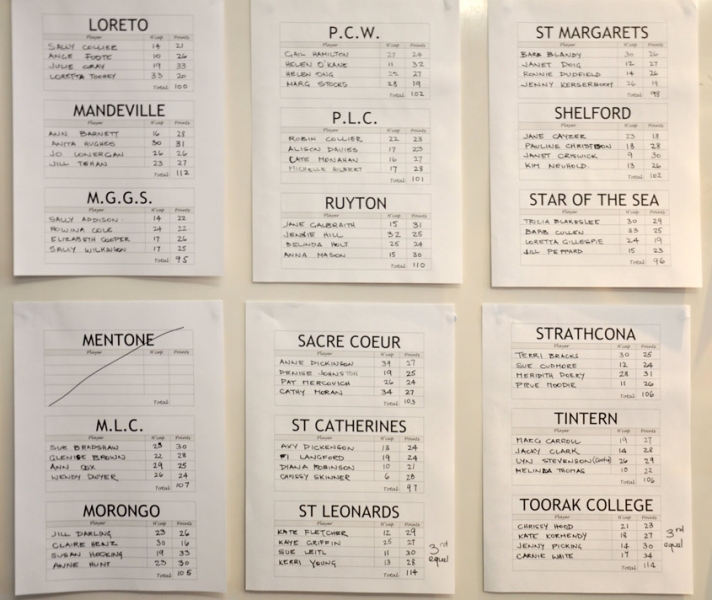 LORETO
Player H'cap Points
SALLY COLLIER 14 21
ANGE FOOTE 10 26
JULIE GRAY 19 33
LORETTA TOOHEY 33 20
Total: 100
MANDEVILLE
Player H'cap Points
ANN BARNETT 16 28
ANITA HUGHES 30 31
JO LONERGAN 26 26
JILL TEHAN 23 27
Total: 112
M.G.G.S.
Player H'cap Points
SALLY ADDISON 14 22
ROWINA COLE 24 22
ELIZABETH COOPER 17 26
SALLY WILKINSON 17 25
Total: 95
P.C.W.
Player H'cap Points
GAIL HAMILTON 23 24
HELEN O'KANE 11 32
HELEN ONG 25 27
MARG STOCKS 28 19
Total: 102
P.L.C.
Player H'cap Points
ROBIN COLLIER 22 23
ALISON DAVIES 17 23
CATE MONAHAN 16 27
MICHELLE 17 28
Total: 101
RUYTON
Player H'cap Points
JANE GALBRAITH 15 31
JENNIE HILL 32 25
BELINDA HOLT 25 24
ANNA MASON 15 30
Total: 110
ST MARGARETS
Player H'cap Points
BARB BLANDY 30 26
JANET DOIG 12 27
RONNIE DUDFIELD 14 26
JENNY 26 19
Total: 98
SHELFORD
Player H'cap Points
JANE CAYZER 23 18
PAULINE 18 28
JANET CRISWICK 9 30
KIM NEUHOLD 13 26
Total: 102
STAR OF THE SEA
Player H'cap Points
TRICIA BLAKESLEE 30 29
BARB CULLEN 33 25
LORETTA GILLESPIE 24 19
JILL PEPPARD 15 23
Total: 96
MENTONE
Player H'cap Points
Total:
M.L.C.
Player H'cap Points
SUE BRADSHAW 23 30
GLENISE BROWN 22 28
ANN COX 29 25
WENDY DWYER 26 24
Total: 107
MORONGO
Player H'cap Points
JILL DARLING 23 26
CLAIRE HENZ 30 16
SUSAN HOCKING 19 33
ANNE HUNT 23 30
Total: 105
SACRE COEUR
Player H'cap Points
ANNE DICKINSON 34 27
DENISE JOHNSTON 19 25
PAT MERCOVICH 26 24
CATHY MORAN 34 27
Total: 103
ST CATHERINES
Player H'cap Points
AVY DICKENSON 18 24
LANGFORD 19 24
DIANA ROBINSON 10 21
CHRISSY SKINNER 6 28
Total: 97
ST LEONARDS
Player H'cap Points
KATE FLETCHER 12 29
KAYE GRIFFIN 25 27
SUE LEITL 11 30
KERRI YOUNG 13 28
Total: 114
3rd
equal
STRATHCONA
Player H'cap Points
TERRI BRACKS 30 25
SUE CUDMORE 12 24
MERIDITH DOERY 28 31
PRUE MOODIE 11 26
Total: 106
TINTERN
Player H'cap Points
MARG CARROLL 19 27
JACKY CLARK 14 28
LYN STEVENSON 26 29
MELINDA THOMAS 10 22
Total: 106
TOORAK COLLEGE
Player H'cap Points
CHRISSY HOOD 21 23
KATE KORMENDY 18 27
JENNY PICKING 14 30
CARNIE WHITE 17 34
Total: 114
3rd
equal